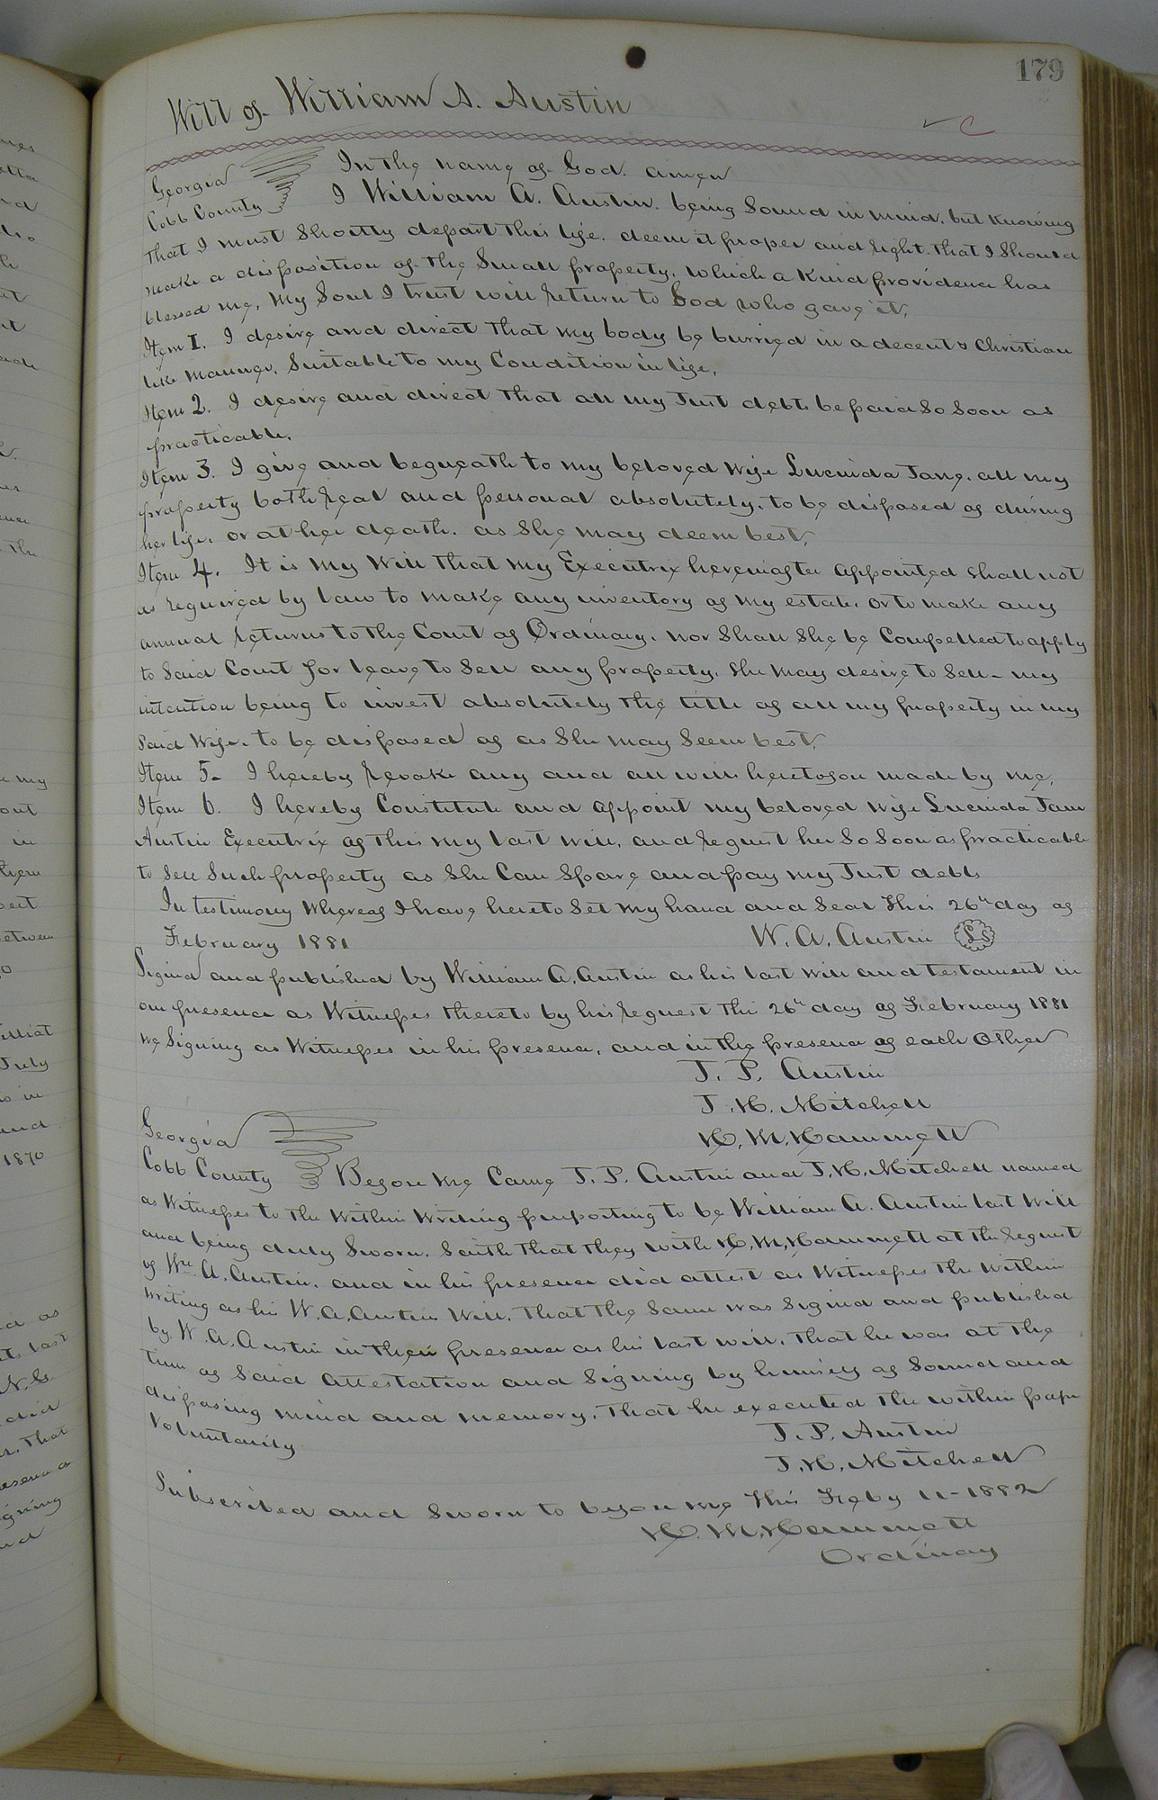 179
Will of William A. Austin
Georgia
Cobb County
In the name of God. amen
I William A. Austin. being Sound in mind. but knowing
that I must Shortly depart this life. deem it proper and right. that I Should
make a disposition of the Small property. which a kind providence has
blessed me, My Soul I trust will return to God who gave it,
Item 1. I desire and direct that my body be burried in a decent & Christian
like manner. Suitable to my Condition in life,
Item 2. I desire and direct that all my Just debts be paid So Soon as
practicable.
Item 3. I give and bequeath to my beloved wife Lucinda Jane. all my
property both real and personal absolutely. to be disposed of during
her life. or at her death. as She may deem best,
Item 4. It is my Will that my Executrix hereinafter appointed shall not
as required by law to make any inventory of my estate. or to make any
annual returns to the Court of Ordinary. nor Shall She be Compelled to apply
to Said Court for leave to Sell any property. She may desire to Sell - my
intention being to invest absolutely the title of all my property in my
Said Wife. to be disposed of as She may Seem best,
Item 5- I hereby revoke any and all wills heretofore made by me.
Item 6. I hereby Constitute and appoint my beloved wife Lucinda Jane
Austin Executrix of this my last will, and request her So Soon as practicable
to Sell Such property as She Can Spare and pay my Just debts
In testimony Whereof I have hereto Set my hand and Seal this 26th day of
February 1881 W. A. Austin LS
Signed and published by William A. Austin as his last will and testament in
our presence as Witnesses thereto by his request this 26th day of February 1881
we Signing as Witnesses in his presence, and in the presence of each Other
J. P. Austin
J. H. Mitchell
H. M. Hammett
Georgia
Cobb County Before me Came J. P. Austin and J. H. Mitchell named
as Witnesses to the Within Writing purporting to be William A. Austin last Will
and being duly Sworn. Saith that they with H. M. Hammett at the request
of Wm A. Austin. and in his presence did attest as Witnesses the within
writing as his W. A. Austin Will. that the Same was Signed and published
by W. A. Austin in their presence as his last will. that he was at the
time of Said attestation and Signing by himself of Sound and
disposing mind and memory. that he executed the within paper
Voluntarily
J. P. Austin
J. H. Mitchell
Subscribed and Sworn to before me this Feby 11-1882
H. M. Hammett
Ordinary